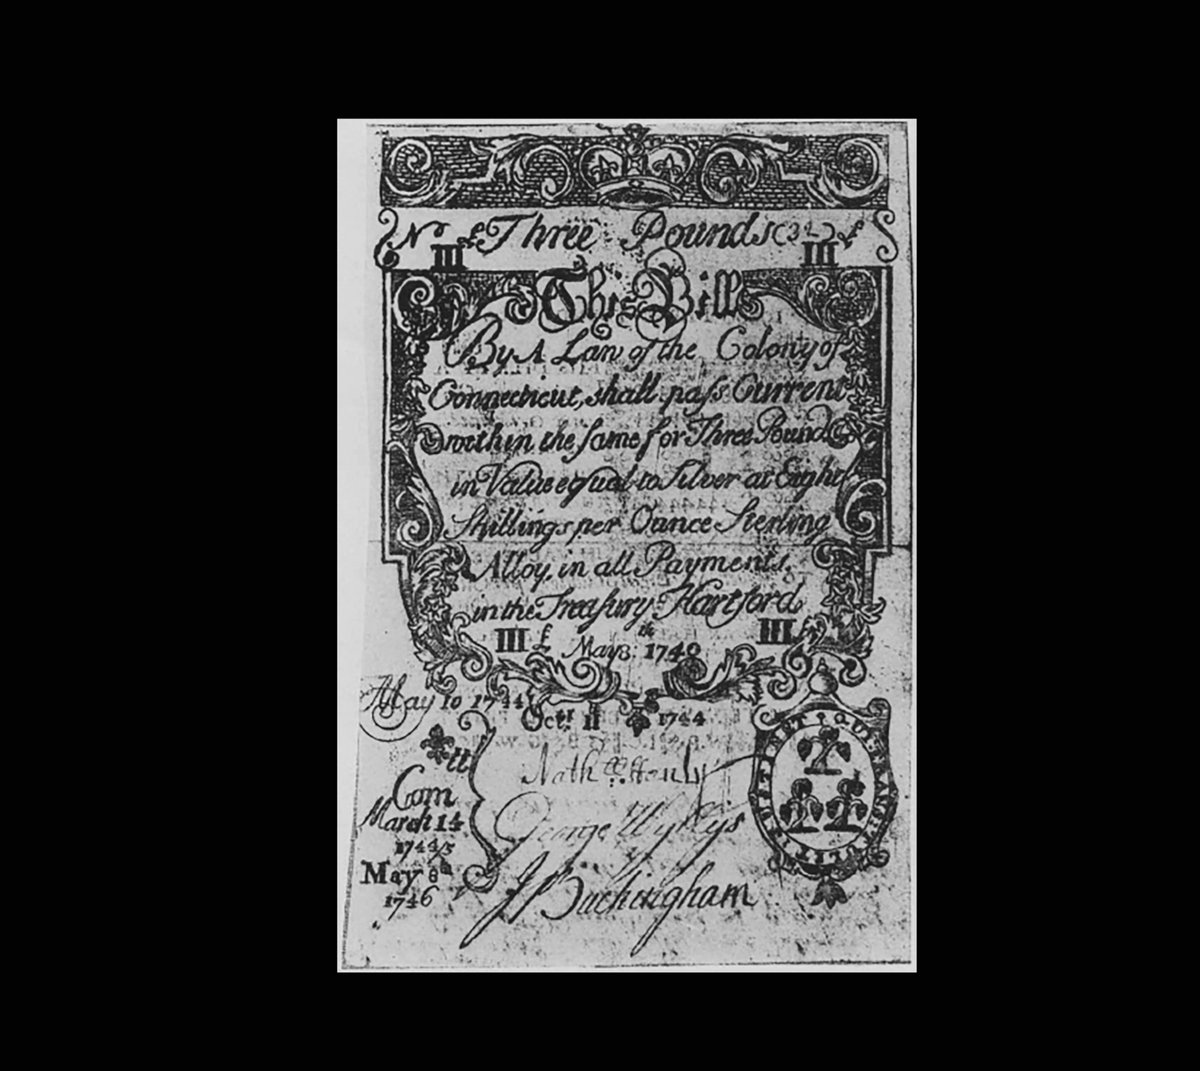 No £ Three Pounds (3L) £
III III
This Bill
By A Law of the Colony of
Connecticut, shall paſs Current
within the ſame for Three Pounds
in Value equal to Silver at Eight
Shillings per Ounce Sterling
Alloy, in all Payments,
in the Treaſury. Hartford
III £ May 8th 1740 III £
May 10 1744
Octr. 11 1744
Com
March 14
1744/5
May 8th
1746
George Wyllys
J Buckingham
SUSTINET QUI TRANSTULIT